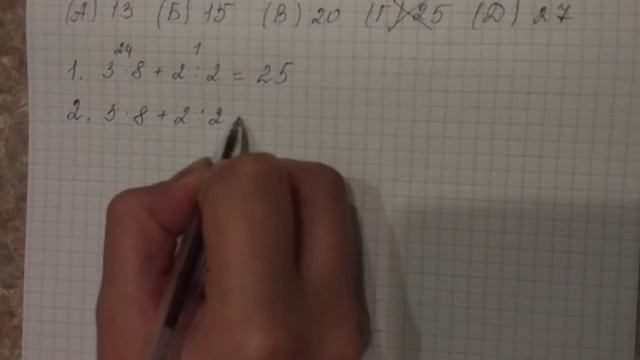 (А) 13 (Б) 15 (В) 20 (Г) 25 (Д) 27
24 1
1. 3 · 8 + 2 : 2 = 25
2. 3 · 8 + 2 : 2